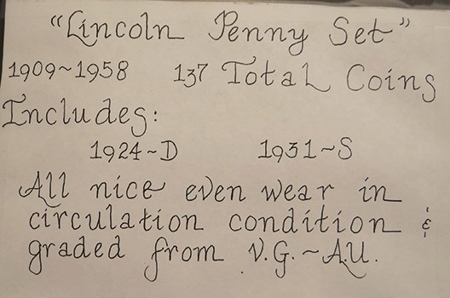 "Lincoln Penny Set"
1909~1958 137 Total Coins
Includes:
1924~D 1931~S
All nice even wear in
circulation condition &
graded from V.G.~A.U.